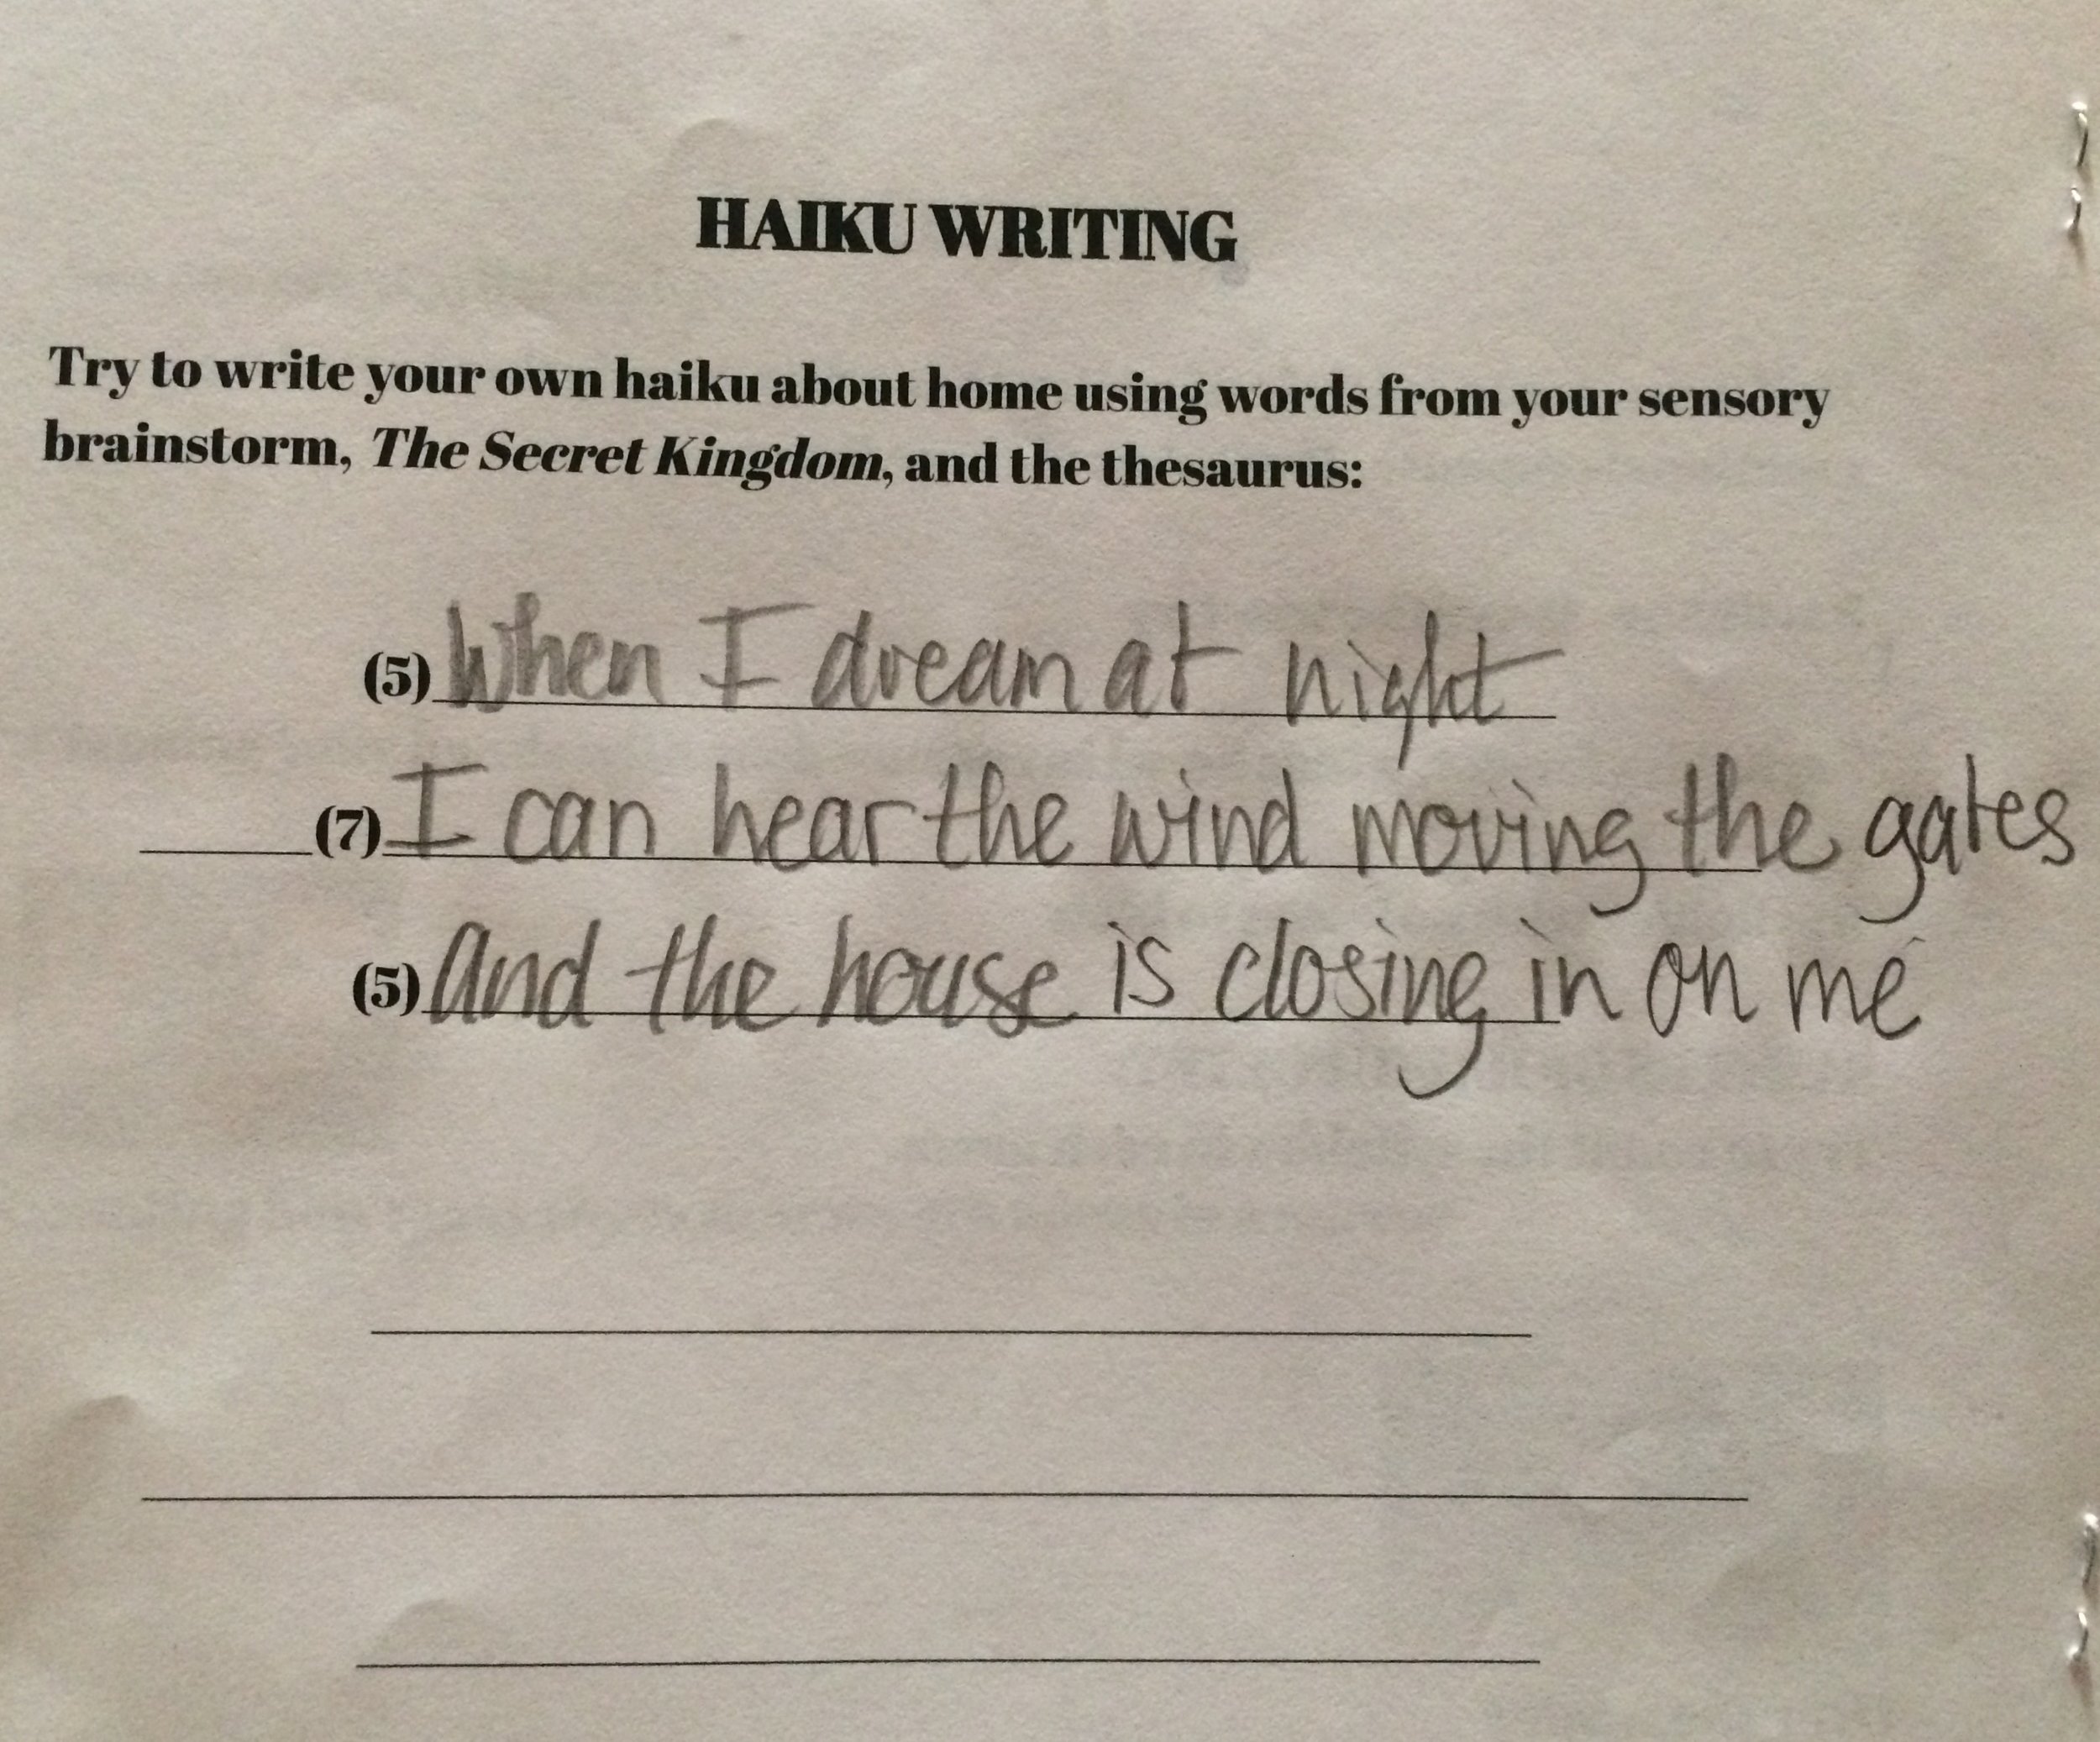 HAIKU WRITING
Try to write your own haiku about home using words from your sensory
brainstorm, The Secret Kingdom, and the thesaurus:
(5) When I dream at night
(7) I can hear the wind moving the gates
(5) and the house is closing in on me